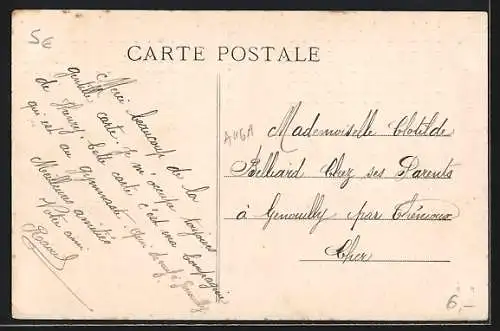 5€
CARTE POSTALE
Merci beaucoup de la
gentille carte. Je m'occupe toujours
de Fleury. Cette carte c'est ma compagnie
qui est au gymnaste. Qui
Meilleures amitiés
Votre ami
Mademoiselle Clotilde
Belliard Chez ses Parents
à Genouilly par Thénioux
Cher
6,-